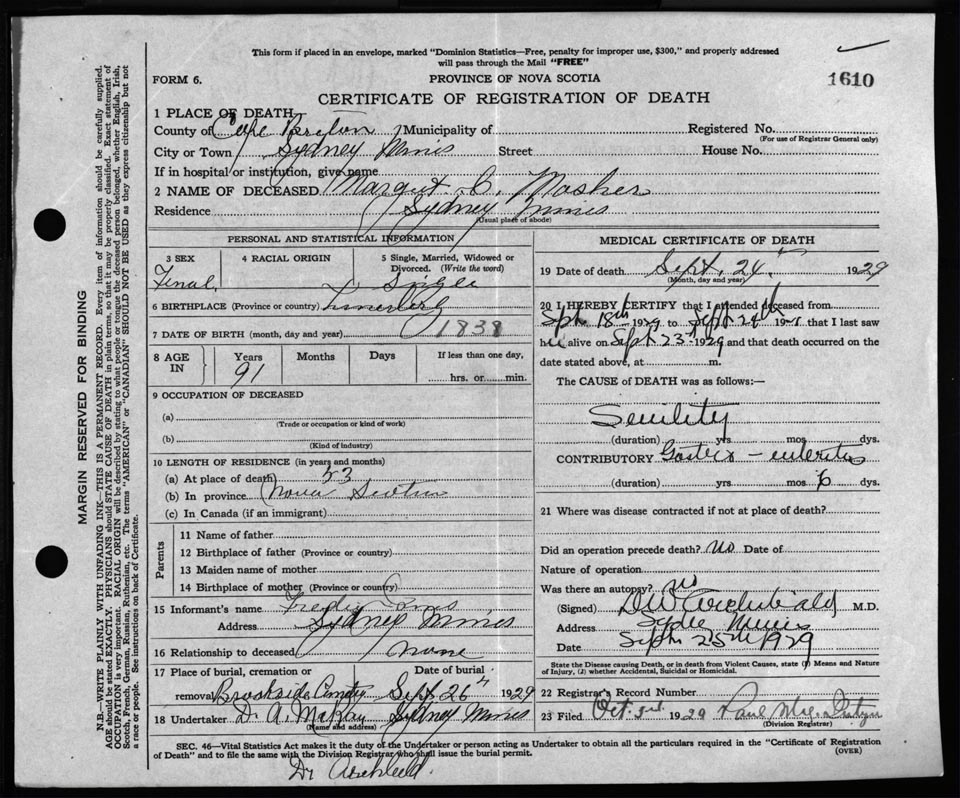 This form if placed in an envelope, marked "Dominion Statistics—Free, penalty for improper use, $300," and properly addressed
will pass through the Mail "FREE"
FORM 6.
PROVINCE OF NOVA SCOTIA
1610
CERTIFICATE OF REGISTRATION OF DEATH
1 PLACE OF DEATH
County of Cape Breton Municipality of
Registered No.
(For use of Registrar General only)
City or Town Sydney Mines Street House No.
If in hospital or institution, give name
2 NAME OF DECEASED Margret C. Mosher
Residence Sydney Mines
(Usual place of abode)
PERSONAL AND STATISTICAL INFORMATION
3 SEX
4 RACIAL ORIGIN
5 Single, Married, Widowed or
Divorced. (Write the word)
Femal
Single
6 BIRTHPLACE (Province or country)
7 DATE OF BIRTH (month, day and year) 1838
8 AGE IN
Years Months Days If less than one day,
91 hrs. or min.
9 OCCUPATION OF DECEASED
(a)
(Trade or occupation or kind of work)
(b)
(Kind of industry)
10 LENGTH OF RESIDENCE (in years and months)
(a) At place of death 53
(b) In province Nova Scotia
(c) In Canada (if an immigrant)
Parents
11 Name of father
12 Birthplace of father (Province or country)
13 Maiden name of mother
14 Birthplace of mother (Province or country)
15 Informant's name
Address Sydney Mines
16 Relationship to deceased None
17 Place of burial, cremation or removal Brookside Cemetry
Date of burial
Sept 26th 1929
18 Undertaker D. A. McKay Sydney Mines
(Name and address)
MEDICAL CERTIFICATE OF DEATH
19 Date of death Sept. 24th 1929
(Month, day and year)
20 I HEREBY CERTIFY that I attended deceased from
Sept 18th 1929 to Sept 24th 192 that I last saw
h alive on Sept 23rd 1929 and that death occurred on the
date stated above, at m.
The CAUSE of DEATH was as follows:—
Senility
(duration) yrs mos dys.
CONTRIBUTORY Gastro-enteritis
(duration) yrs mos 6 dys.
21 Where was disease contracted if not at place of death?
Did an operation precede death? no Date of
Nature of operation
Was there an autopsy? no
(Signed) D W Archibald M.D.
Address Sydney Mines
Date Sept 25th 1929
State the Disease causing Death, or in death from Violent Causes, state (1) Means and Nature
of Injury, (2) whether Accidental, Suicidal or Homicidal.
22 Registrar's Record Number
23 Filed Oct 3rd 1929
(Division Registrar)
SEC. 46—Vital Statistics Act makes it the duty of the Undertaker or person acting as Undertaker to obtain all the particulars required in the "Certificate of Registration
of Death" and to file the same with the Division Registrar who shall issue the burial permit.
(OVER)
Dr Archibald.
MARGIN RESERVED FOR BINDING
N.B.—WRITE PLAINLY WITH UNFADING INK—THIS IS A PERMANENT RECORD. Every item of information should be carefully supplied.
AGE should be stated EXACTLY. PHYSICIANS should STATE CAUSE OF DEATH in plain terms, so that it may be properly classified. Exact statement of
OCCUPATION is very important. RACIAL ORIGIN will be described by stating to what people or tongue the deceased person belonged, whether English, Irish,
Scotch, French, German, Russian, Ruthenian, etc. The terms "AMERICAN" or "CANADIAN" SHOULD NOT BE USED as they express citizenship but not
a race or people. See instructions on back of Certificate.